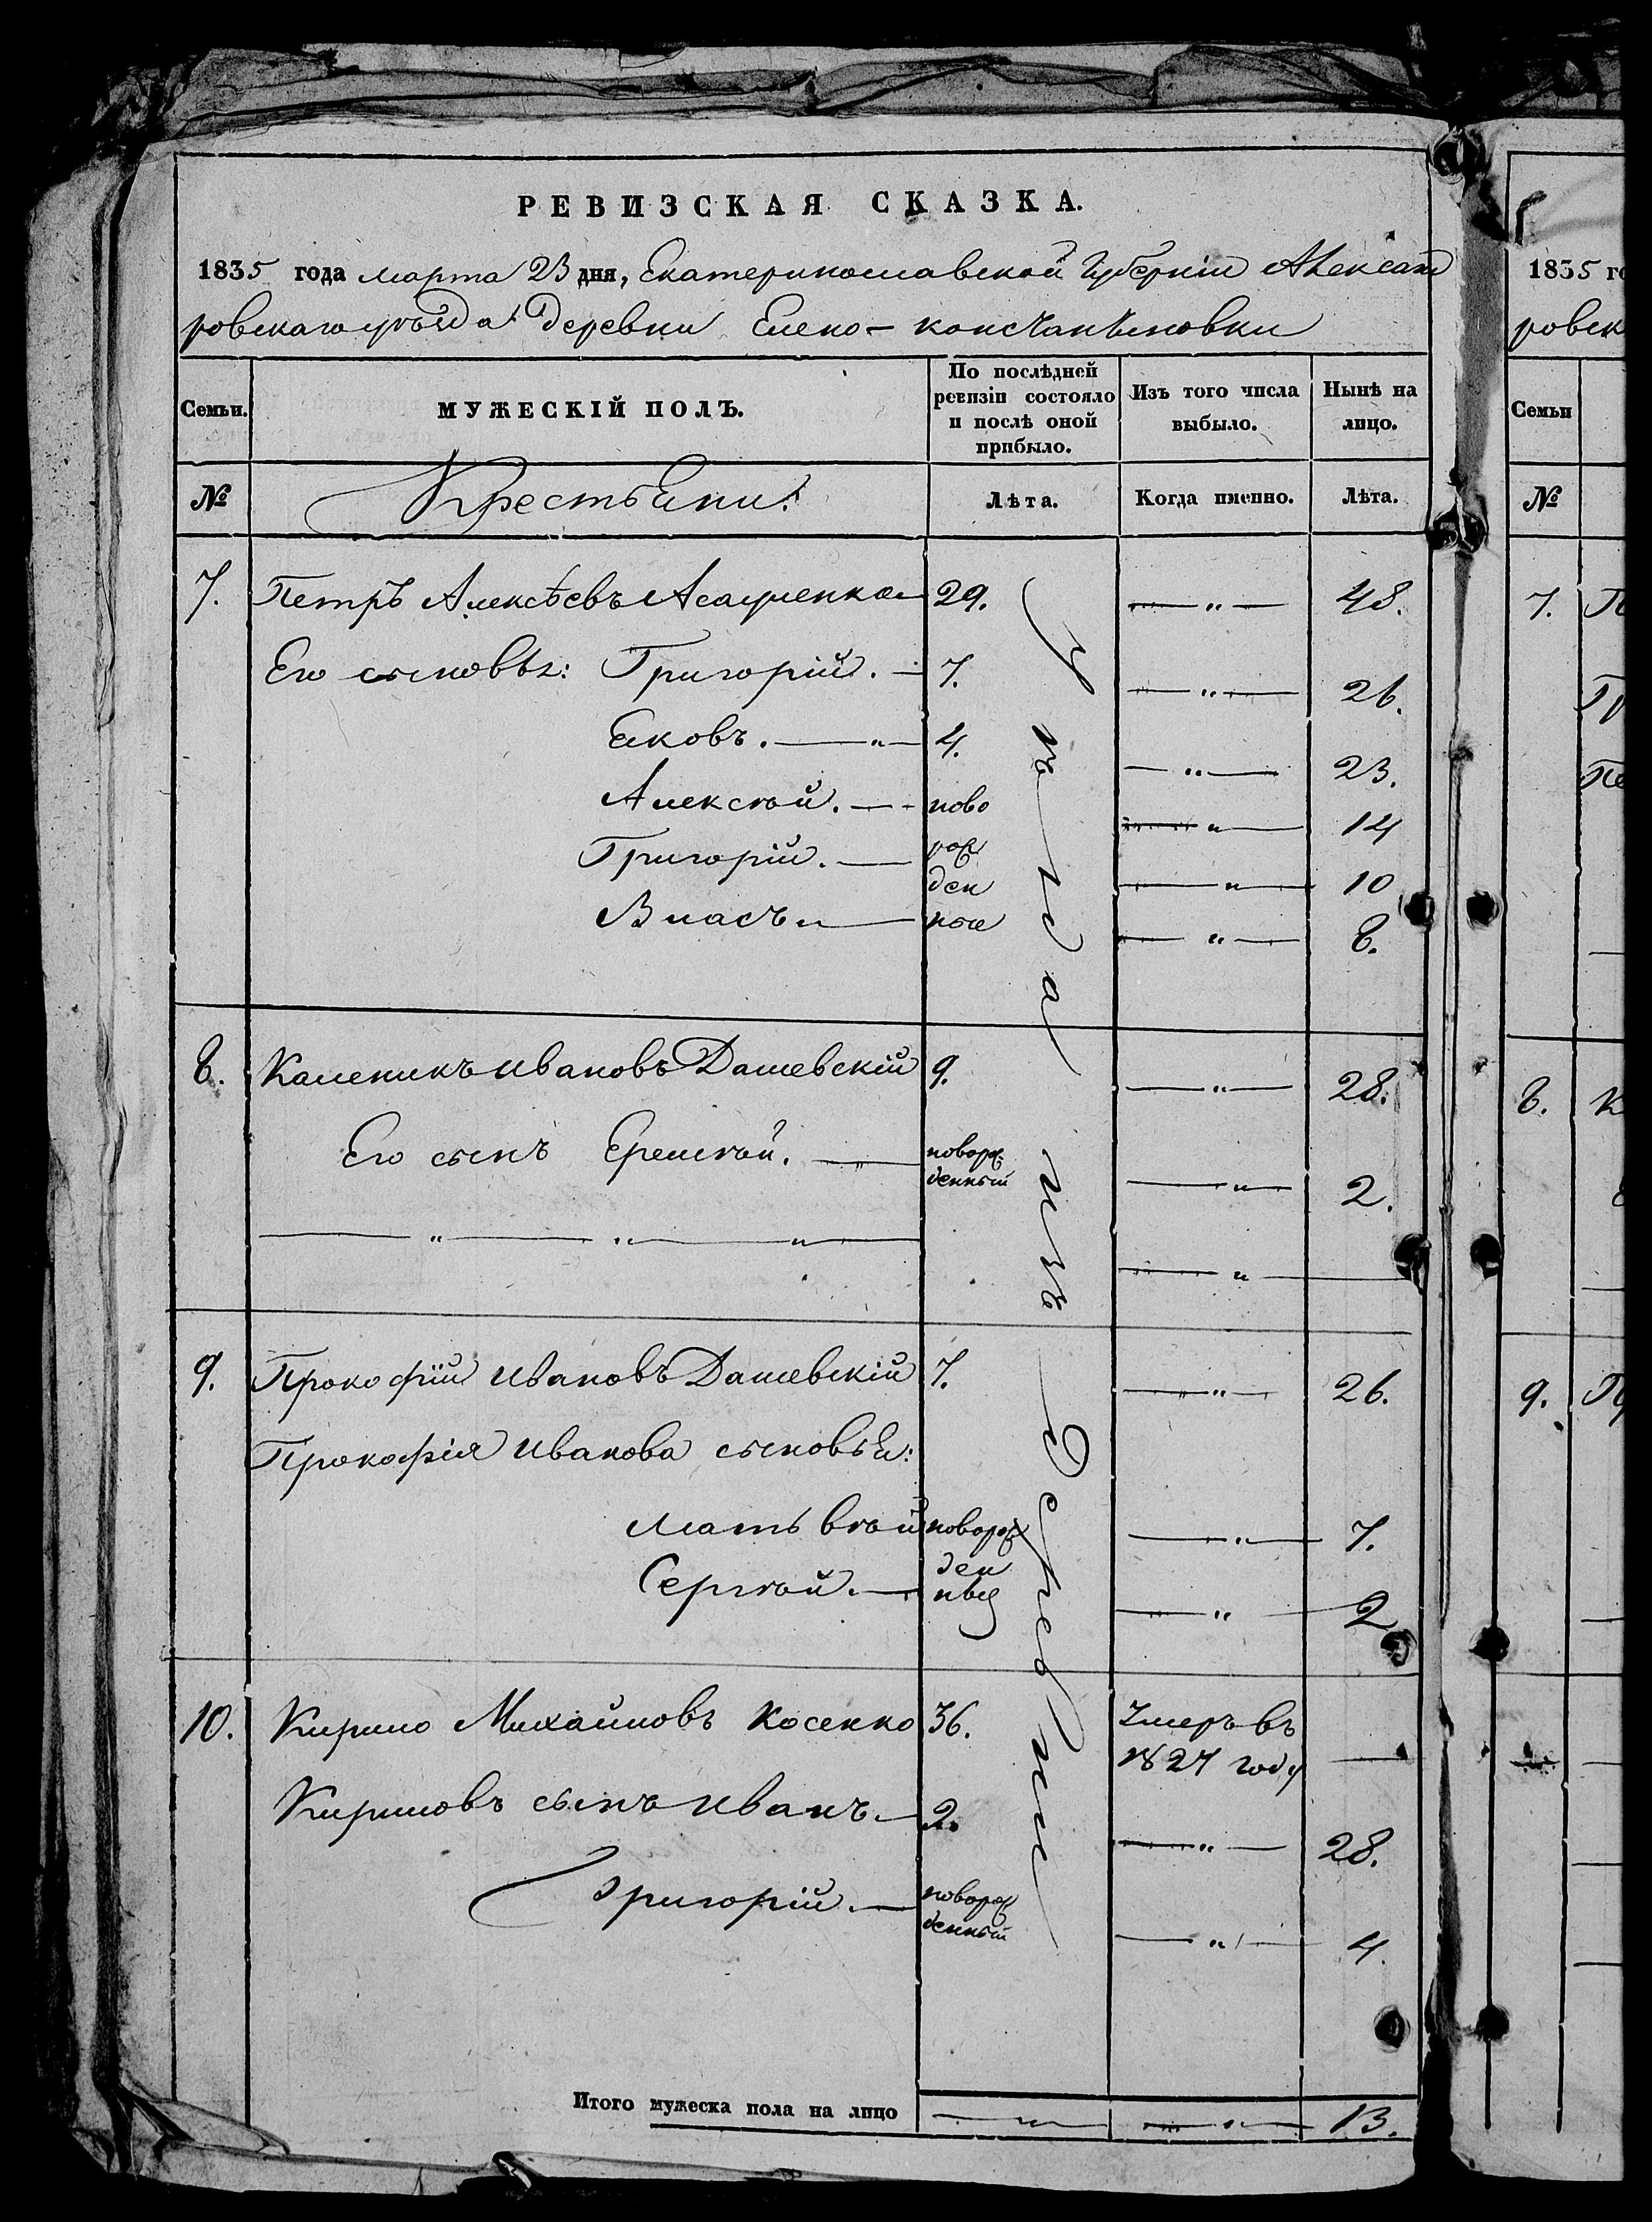 РЕВИЗСКАЯ СКАЗКА.
1835 года марта 23 дня, Екатеринославской Губернiи Александ
ровскаго уѣзда деревни Елено-константиновки
Семьи.
МУЖЕСКIЙ ПОЛЪ.
По послѣдней ревизiи состояло и послѣ оной прибыло.
Изъ того числа выбыло.
Нынѣ на лицо.
№
Крестьяни:
Лѣта.
Когда именно.
Лѣта.
7. Петръ Алексѣевъ Асауленко 29. — „ — 48.
Его сыновья: Григорiй. — 7. — „ — 26.
Яковъ. — „ — 4. — „ — 23.
Алексѣй. — - ново — „ — 14
Григорiй. — рож
ден — „ — 10
Власъ — ные — „ — 8.
8. Каленикъ Ивановъ Дашевскiй 9. — „ — 28.
Его сынъ Еремѣй. — „ — новорож
денный — „ — 2.
— „ — „ — „ — — „ —
9. Прокофiй Ивановъ Дашевскiй 7. — „ — 26.
Прокофiя Иванова сыновья:
Матьвѣй новорож — „ — 7.
Сергѣй. — ден
ныя — „ — 2
10. Кирило Михайловъ Косенко 36. Умеръ въ
1827 году —
Кириловъ сынъ Иванъ. — 2. — „ — 28.
Григорiй. — новорож
денный — „ — 4.
уѣзда низъ деревни
Итого мужеска пола на лицо — „ — — „ — 13.
1835 го
ровск
Семьи
№
7. П
Гр
Пе
8. К
9. Пр